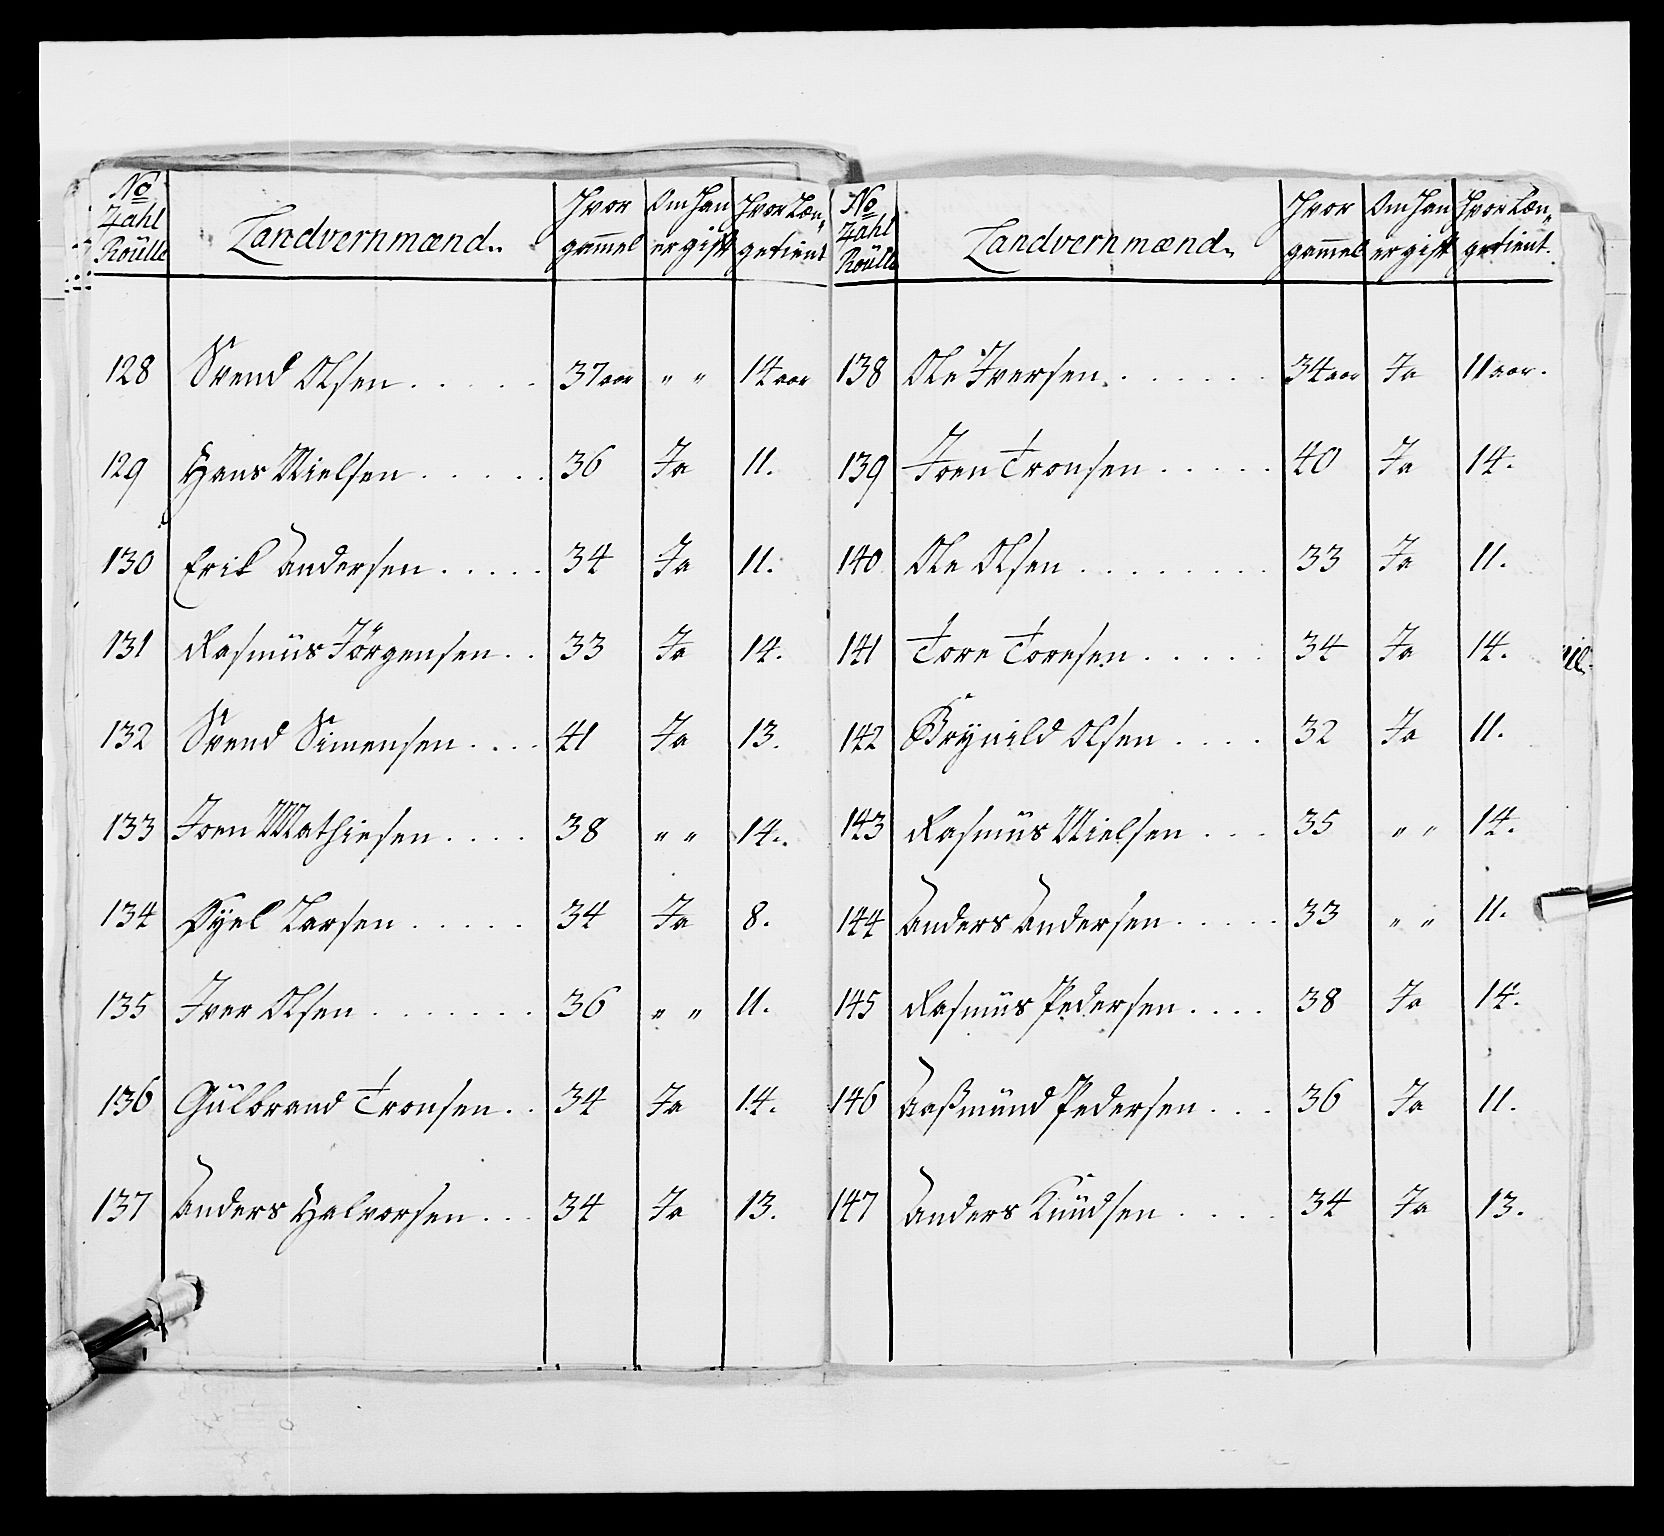 No Zahl Roülle | Landvernmænd. | Hvor gammel | Om Han er gift | Hvor Længe tient
128 Svend Olsen . . . . . 37 aar „ „ 14 aar
129 Hans Nielsen . . . . . 36 Ja 11.
130 Erik Andersen . . . . . 34 Ja 11.
131 Rasmüs Jörgensen . . 33 Ja 14.
132 Svend Simensen . . . . 41 Ja 13.
133 Joen Mathiesen . . . . 38 „ „ 14.
134 Kyel Larsen . . . . . 34 Ja 8.
135 Iver Olsen . . . . . . . 36 „ „ 11.
136 Gülbrand Tronsen . . 34 Ja 14.
137 Anders Halvorsen . . . 34 Ja 13.
No Zahl Roülle | Landvernmænd. | Hvor gammel | Om Han er gift | Hvor Længe tient.
138 Ole Iversen . . . . . . 34 aar Ja 11 aar.
139 Joen Tronsen . . . . . 40 Ja 14.
140 Ole Olsen . . . . . . . . 33 Ja 11.
141 Tore Toresen . . . . . 34 Ja 14.
142 Brynild Olsen . . . . 32 Ja 11.
143 Rasmüs Nielsen . . . 35 „ „ 14.
144 Anders Andersen . . . . . 33 „ „ 11.
145 Rasmüs Pedersen . . . . 38 Ja 14.
146 Aaßmünd Pedersen . . . 36 Ja 11.
147 Anders Knüdsen . . . . 34 Ja 13.